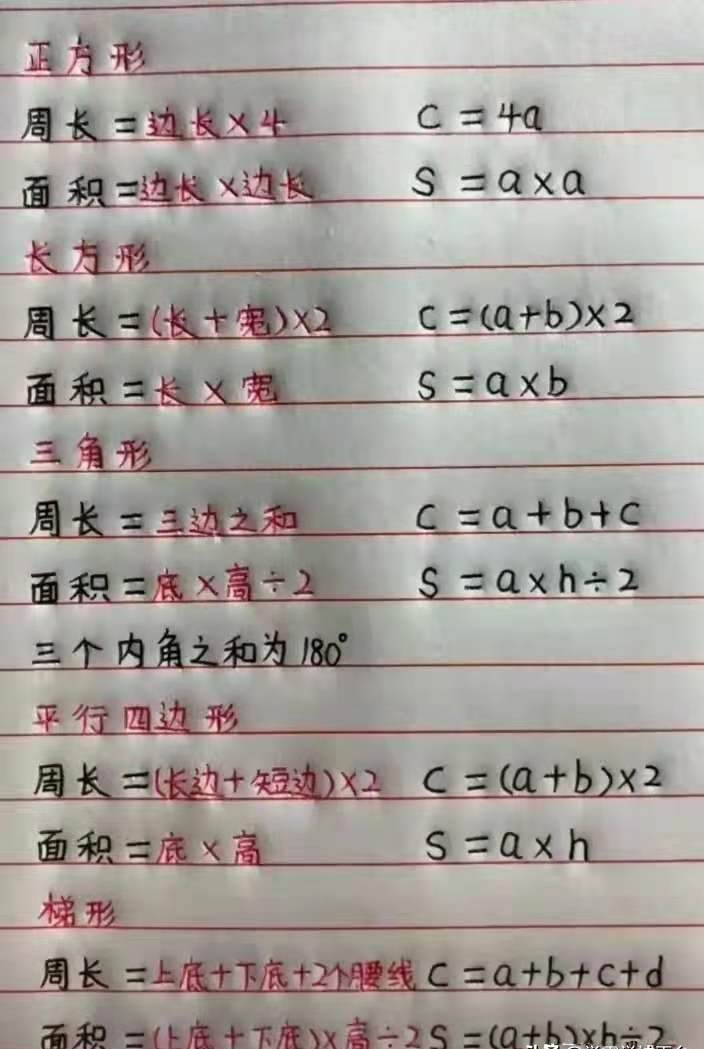 正方形
周长=边长×4 C=4a
面积=边长×边长 S=a×a
长方形
周长=(长+宽)×2 C=(a+b)×2
面积=长×宽 S=a×b
三角形
周长=三边之和 C=a+b+c
面积=底×高÷2 S=a×h÷2
三个内角之和为180°
平行四边形
周长=(长边+短边)×2 C=(a+b)×2
面积=底×高 S=a×h
梯形
周长=上底+下底+2个腰线 C=a+b+c+d
面积=(上底+下底)×高÷2 S=(a+b)×h÷2